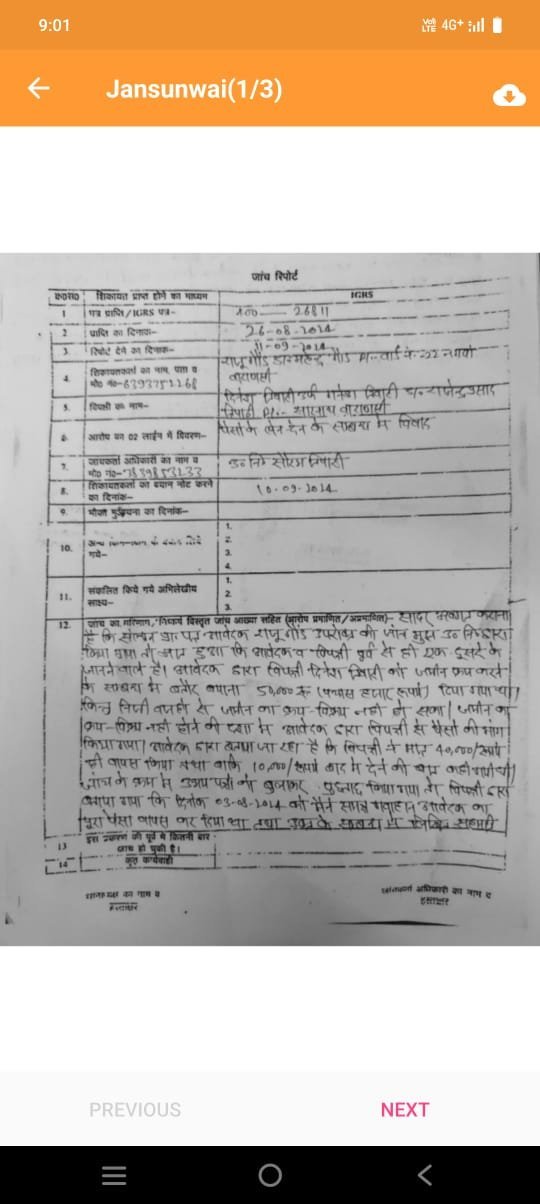 9:01
Vo) LTE 4G+
Jansunwai(1/3)
जांच रिपोर्ट
क्र०सं० शिकायत प्राप्त होने का माध्यम IGRS
1 पत्र प्राप्ति/IGRS पत्र- 26811
2 प्राप्ति का दिनांक- 26-08-2024
3. रिपोर्ट देने का दिनांक- 11-09-2024
4. शिकायतकर्ता का नाम, पता व मो० नं०-6393751268 राजू गौड़ नि०- वाराणसी
5. विपक्षी का नाम- दिनेश तिवारी उर्फ तिवारी सारनाथ वाराणसी
6. आरोप का 02 लाईन में विवरण- पैसो के लेन देन के सम्बन्ध में विवाद
7. जांचकर्ता अधिकारी का नाम व मो० नं०-7839853133 उ० नि० सौरभ तिवारी
8. शिकायतकर्ता का बयान नोट करने का दिनांक- 10-09-2024
9. मौका मुआयना का दिनांक-
10. गये- 1. 2. 3. 4.
11. संकलित किये गये अभिलेखीय साक्ष्य- 1. 2. 3.
12. जांच का परिणाम, निष्कर्ष विस्तृत जांच आख्या सहित (आरोप प्रमाणित/अप्रमाणित)- सादर अवगत कराना
है कि आवेदक राजू गौड़ उपरोक्त की जांच मुझ उ० नि० द्वारा
किया गया तो ज्ञात हुआ कि आवेदक व विपक्षी पूर्व से ही एक दूसरे के
जानने वाले है। आवेदक द्वारा विपक्षी दिनेश तिवारी को जमीन क्रय करने
के सम्बन्ध में बतौर बयाना 50,000 रू० (पचास हजार रूपये) दिया गया था।
किन्तु वजहों से जमीन का क्रय-विक्रय नहीं हो सका। जमीन का
क्रय-विक्रय नहीं होने की दशा में आवेदक द्वारा विपक्षी से पैसों की मांग
किया गया। आवेदक द्वारा बताया जा रहा है कि विपक्षी ने मात्र 40,000/रूपये
ही वापस किया तथा बाकि 10,000/रूपये बाद में देने की बात कही गयी थी।
जांच के क्रम में उभय पक्षों को बुलाकर पूछताछ किया गया तो विपक्षी द्वारा
बताया गया कि दिनांक 03-08-2024 को मैने समक्ष गवाहान आवेदक का
पूरा पैसा वापस कर दिया था तथा उक्त के सम्बन्ध में लिखित
13 इस प्रकरण की पूर्व में कितनी बार जांच हो चुकी है।
14 कृत कार्यवाही
का नाम व
हस्ताक्षर
जांचकर्ता अधिकारी का नाम व
हस्ताक्षर
PREVIOUS
NEXT